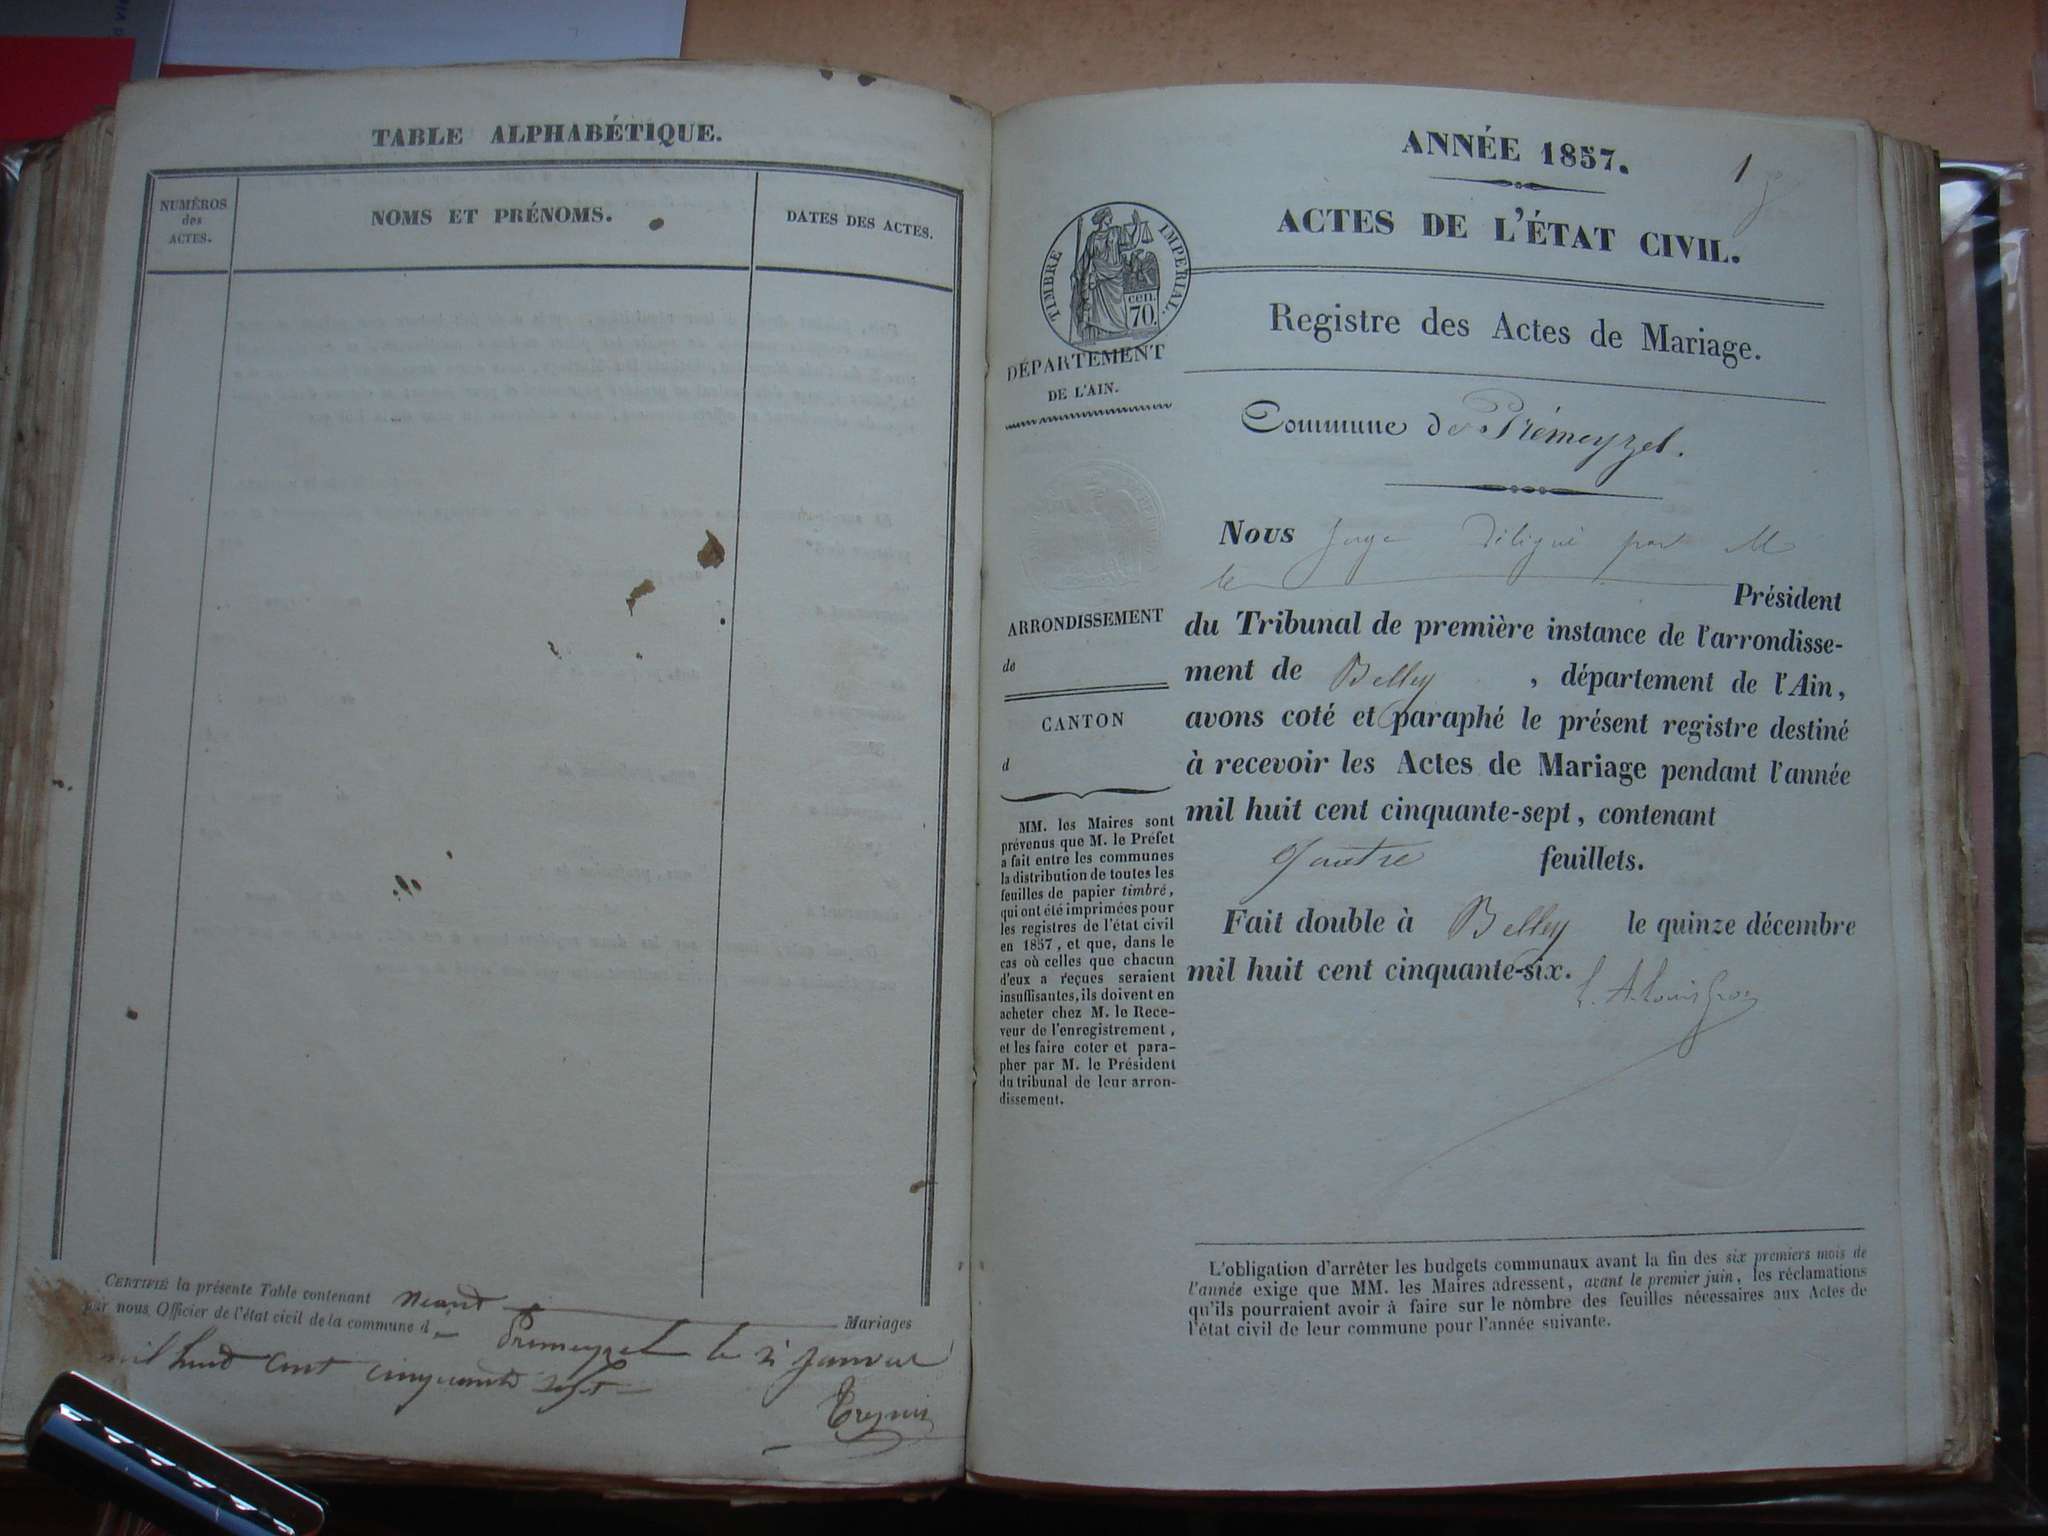 TABLE ALPHABÉTIQUE.
NUMÉROS
des
ACTES.
NOMS ET PRÉNOMS.
DATES DES ACTES.
CERTIFIÉ la présente Table contenant néant
Mariages
par nous Officier de l'état civil de la commune d Prémeyzel le 2 janvier
mil huit cent cinquante sept
ANNÉE 1857.
1
ACTES DE L'ÉTAT CIVIL.
TIMBRE IMPERIAL.
cen.
70.
Registre des Actes de Mariage.
DÉPARTEMENT
DE L'AIN.
Commune de Prémeyzel.
Nous Juge délégué par M
le Président
du Tribunal de première instance de l'arrondisse-
ment de Belley, département de l'Ain,
avons coté et paraphé le présent registre destiné
à recevoir les Actes de Mariage pendant l'année
mil huit cent cinquante-sept, contenant
quatre feuillets.
Fait double à Belley le quinze décembre
mil huit cent cinquante-six.
ARRONDISSEMENT
de
CANTON
d
MM. les Maires sont
prévenus que M. le Préfet
a fait entre les communes
la distribution de toutes les
feuilles de papier timbré,
qui ont été imprimées pour
les registres de l'état civil
en 1857, et que, dans le
cas où celles que chacun
d'eux a reçues seraient
insuffisantes, ils doivent en
acheter chez M. le Rece-
veur de l'enregistrement,
et les faire coter et para-
pher par M. le Président
du tribunal de leur arron-
dissement.
L'obligation d'arrêter les budgets communaux avant la fin des six premiers mois de
l'année exige que MM. les Maires adressent, avant le premier juin, les réclamations
qu'ils pourraient avoir à faire sur le nombre des feuilles nécessaires aux Actes de
l'état civil de leur commune pour l'année suivante.